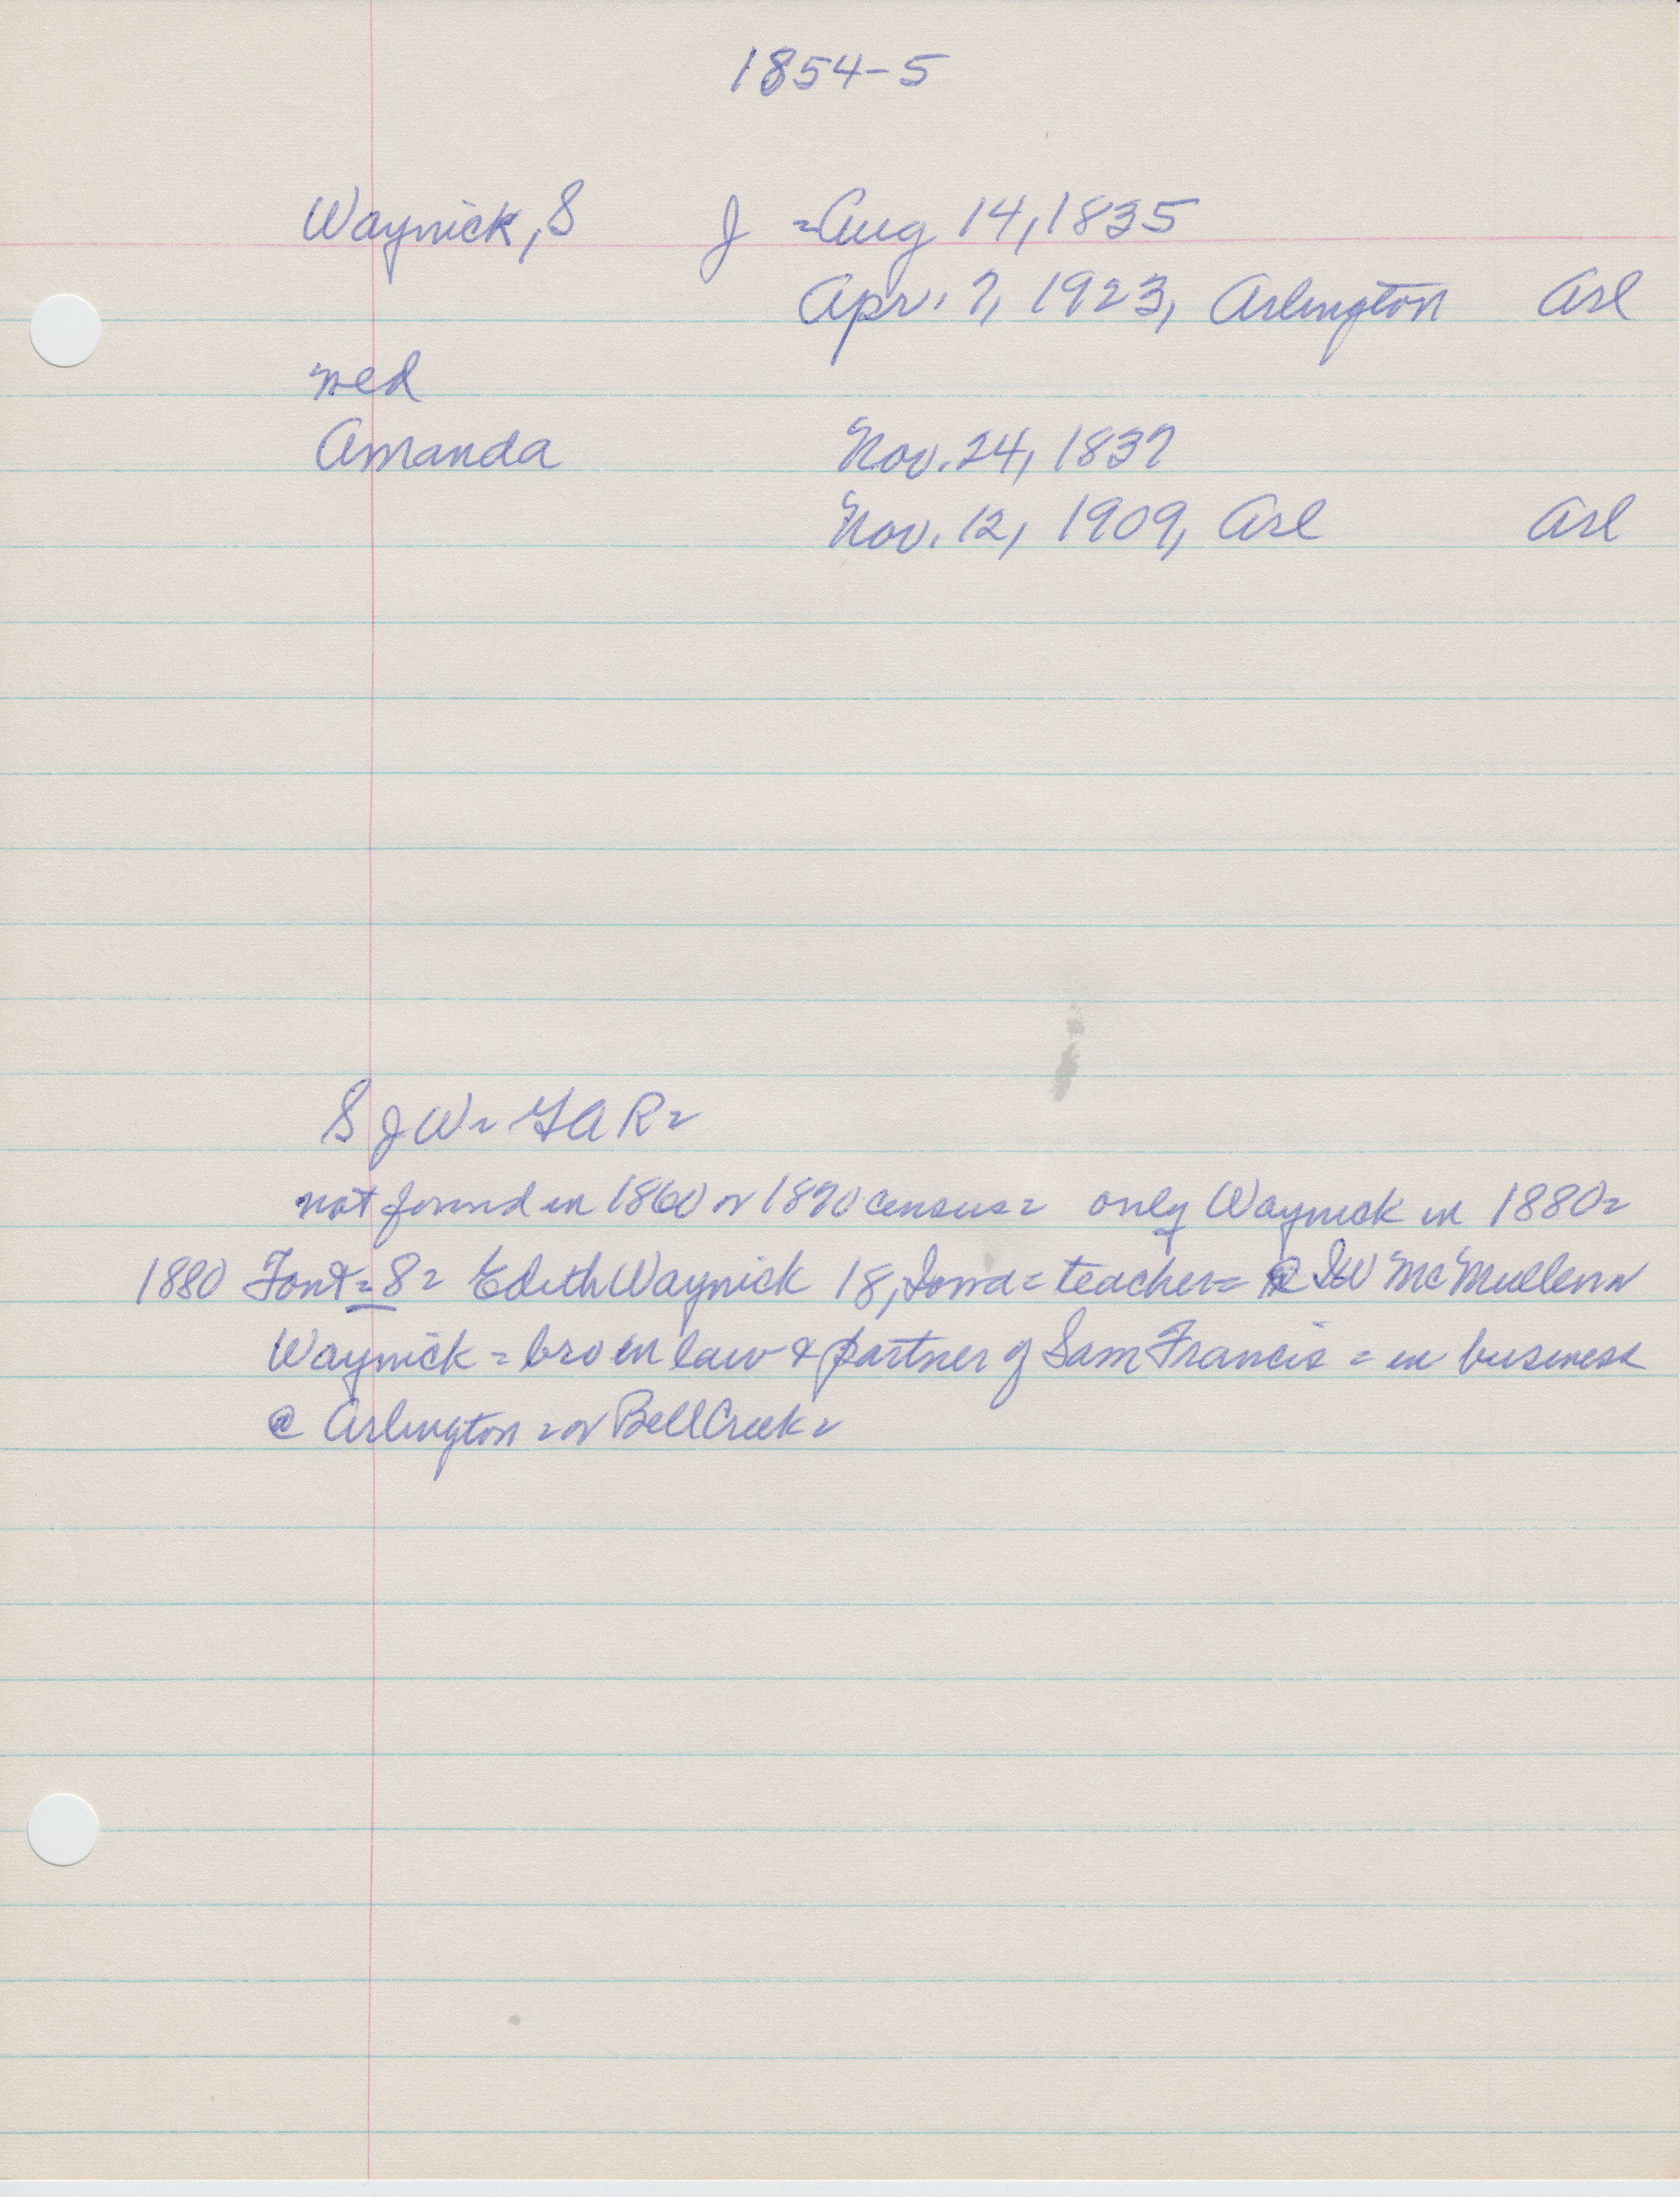 1854-5
Waynick, S J = Aug 14, 1835
Apr. 7, 1923, Arlington Arl
med
Amanda Nov. 24, 1837
Nov. 12, 1909, Arl Arl
S J W = GAR =
not found in 1860 or 1870 census = only Waynick in 1880 =
1880 Font = 8 = Edith Waynick 18, Iowa = teacher = @ McMullen
Waynick = bro in law & partner of Sam Francis = in business
@ Arlington = or Bell Creek =